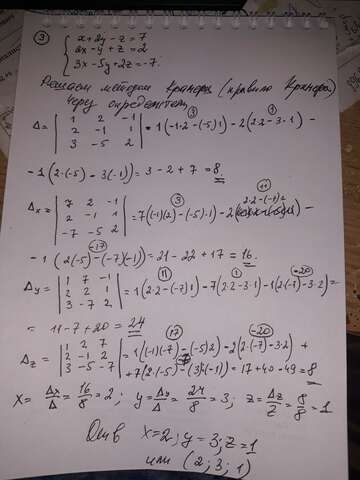 ③ { x+2y-z=7
2x-y+z=2
3x-5y+2z=-7.
Решаем методом Крамера (правило Крамера)
Через определители
Δ= | 1 2 -1 | ③ ①
| 2 -1 1 | = 1(-1·2-(-5)1)-2(2·2-3·1) -
| 3 -5 2 |
-1(2·(-5)-3(-1))=3-2+7=8
Δx= | 7 2 -1 | ③ 11 2·2-(-7)·1
| 2 -1 1 | =7(-1)(2)-(-5)·1)-2( ) -
| -7 -5 2 | -17
-1(2(-5)-(-7)(-1))=21-22+17=16.
Δy= | 1 7 -1 | 11 1 -20
| 2 2 1 | =1(2·2-(-7)1)-7(2·2-3·1)-1(2(-7)-3·2)=
| 3 -7 2 |
= 11-7+20=24
Δz= | 1 2 7 | 17 -20
| 2 -1 2 | =1(-1)(-7)-(-5)2)-2(2·(-7)-3·2) +
| 3 -5 -7 | +7(2·(-5)-(3)(-1))=17+40-49=8
X= Δx/Δ = 16/8 = 2; y= Δy/Δ = 24/8 = 3; z= Δz/Z = 8/8 = 1
Отв x=2; y=3; z=1
или (2; 3; 1)